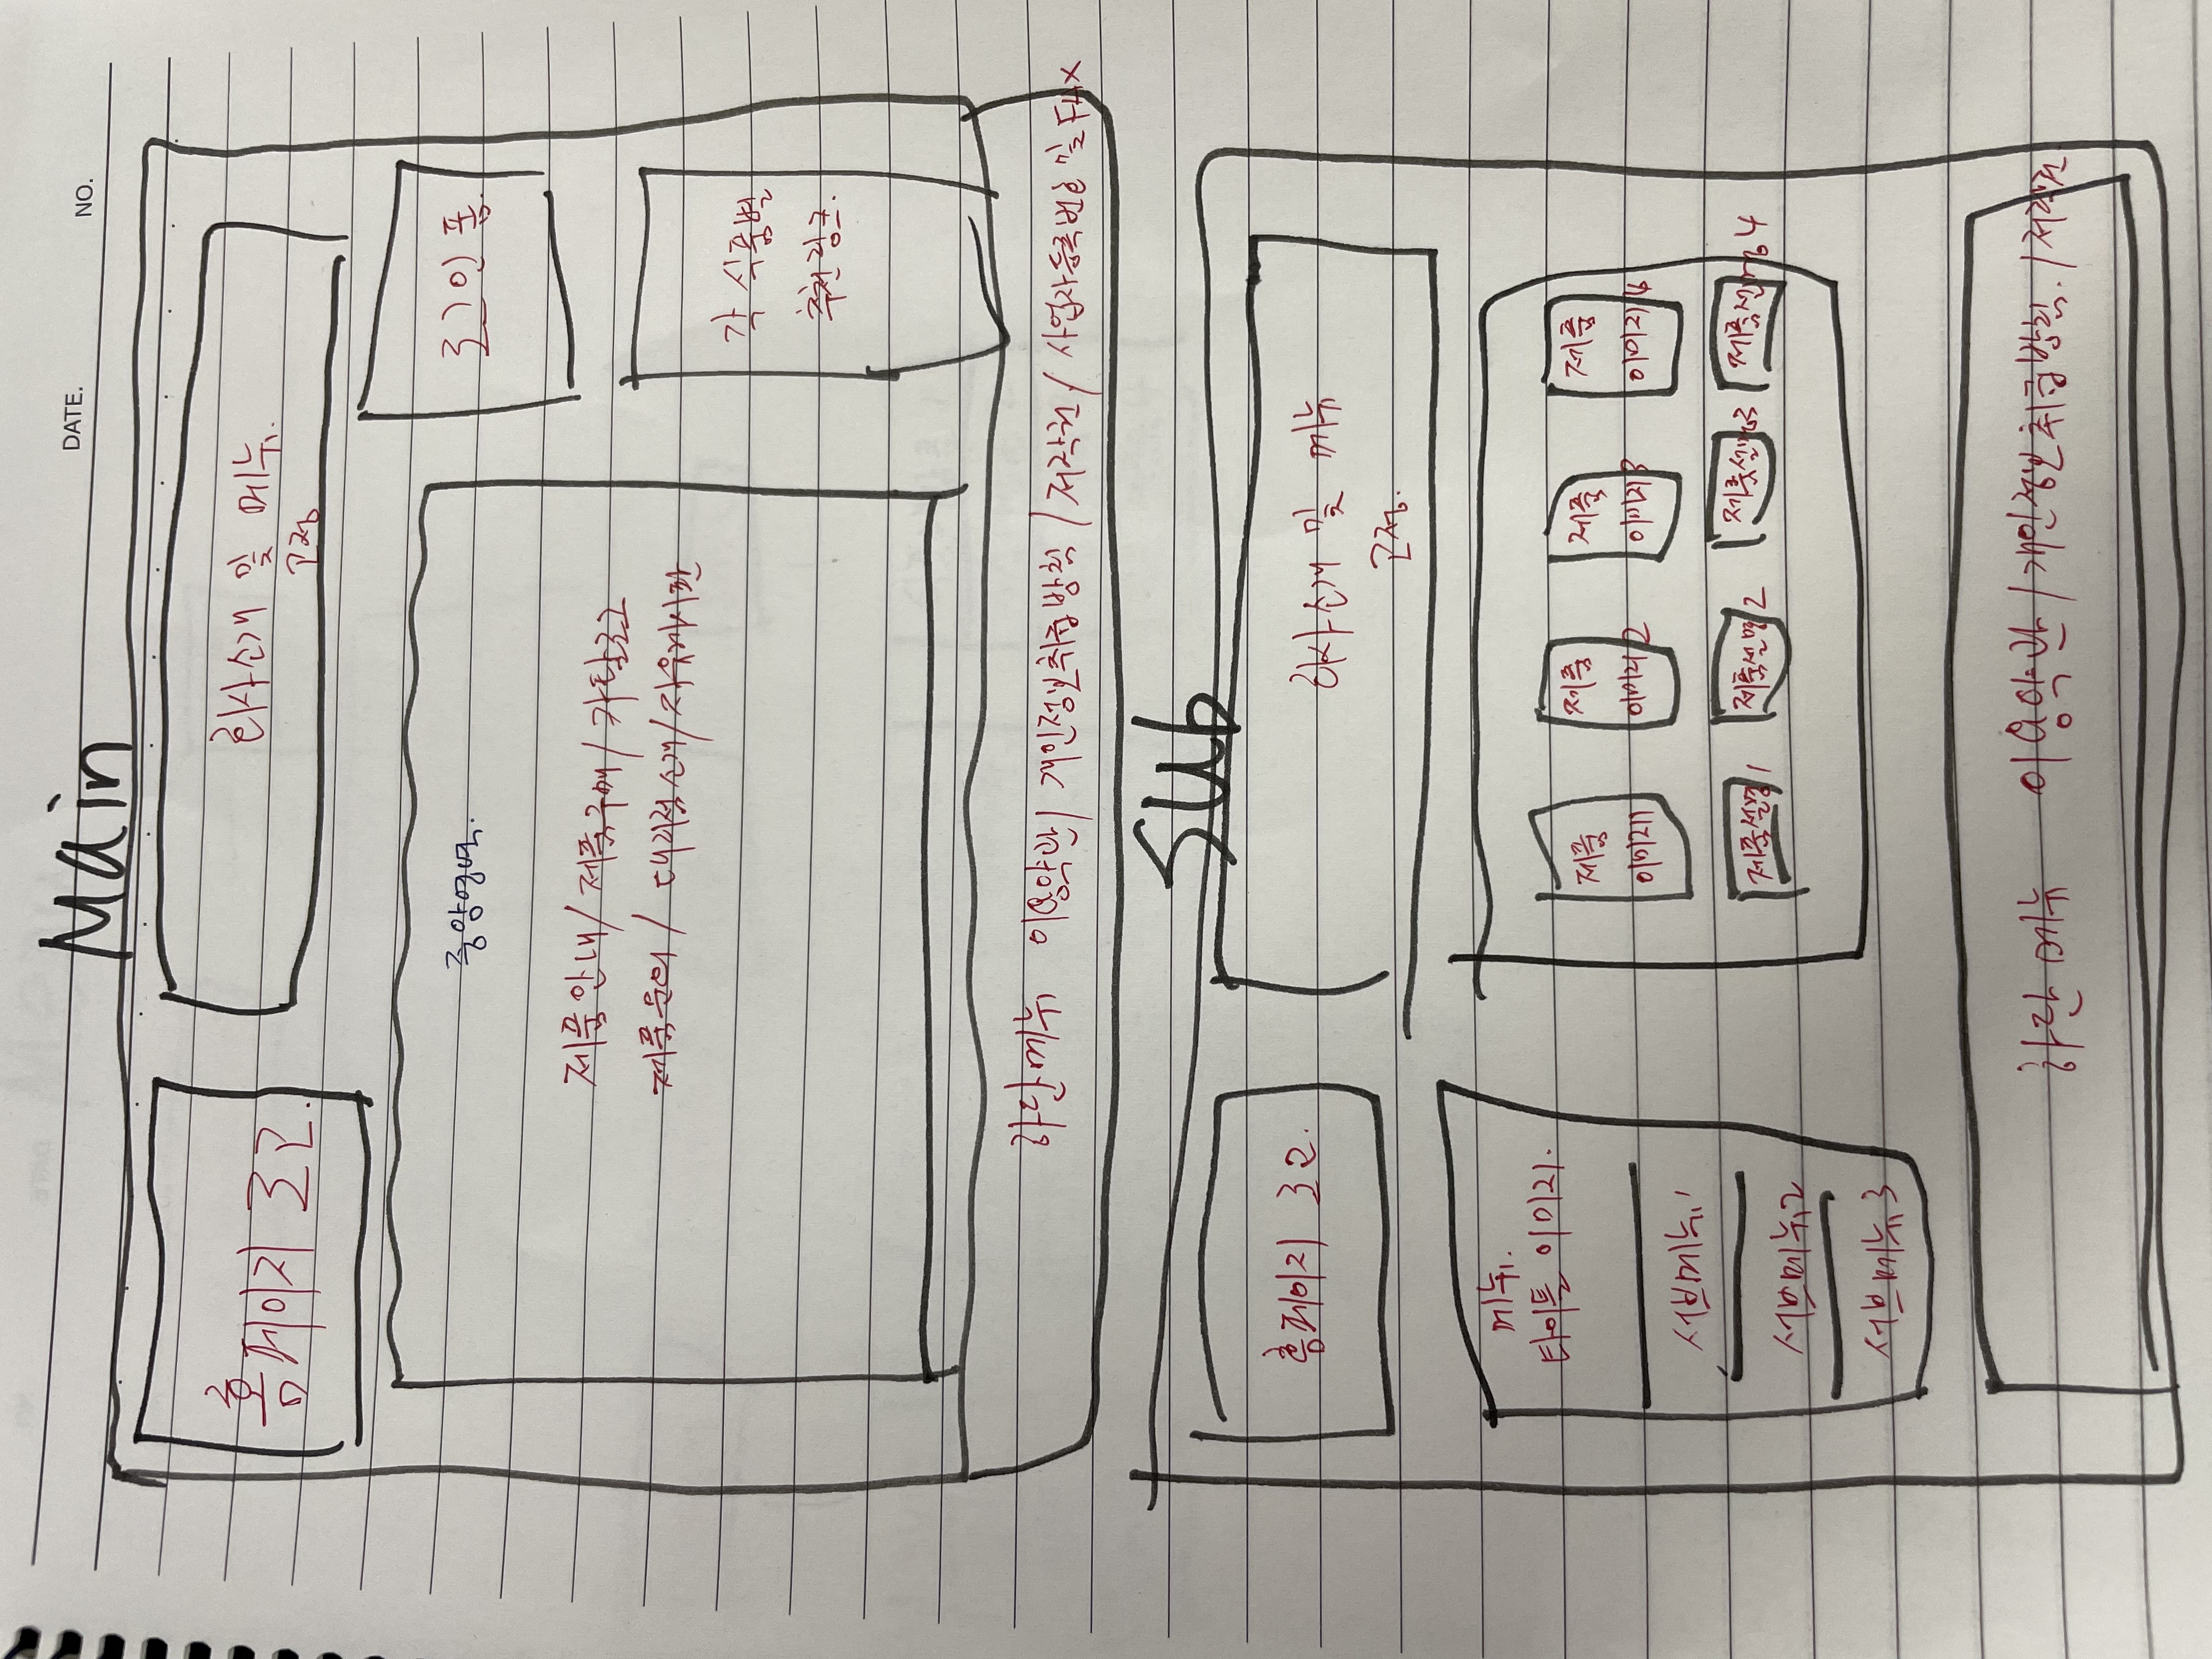 DATE.
NO.
Main
홈페이지 로고.
회사소개 및 메뉴.
고정
중앙영역.
로그인 폼.
제품안내/ 제품구매/ 카탈로그
제품문의/ 대리점소개/자유게시판
각 식품별
추천링크.
하단메뉴 이용약관/ 개인정보취급방침/저작권/ 사업자등록번호 및 FAX
Sub
홈페이지 로고.
회사소개 및 메뉴
고정.
메뉴.
타이틀 이미지.
서브메뉴1
서브메뉴2
서브메뉴3
제품
이미지1
제품
이미지2
제품
이미지3
제품
이미지4
제품설명1
제품설명2
제품설명3
제품설명4
하단 메뉴 이용약관/개인정보취급방침./저작권